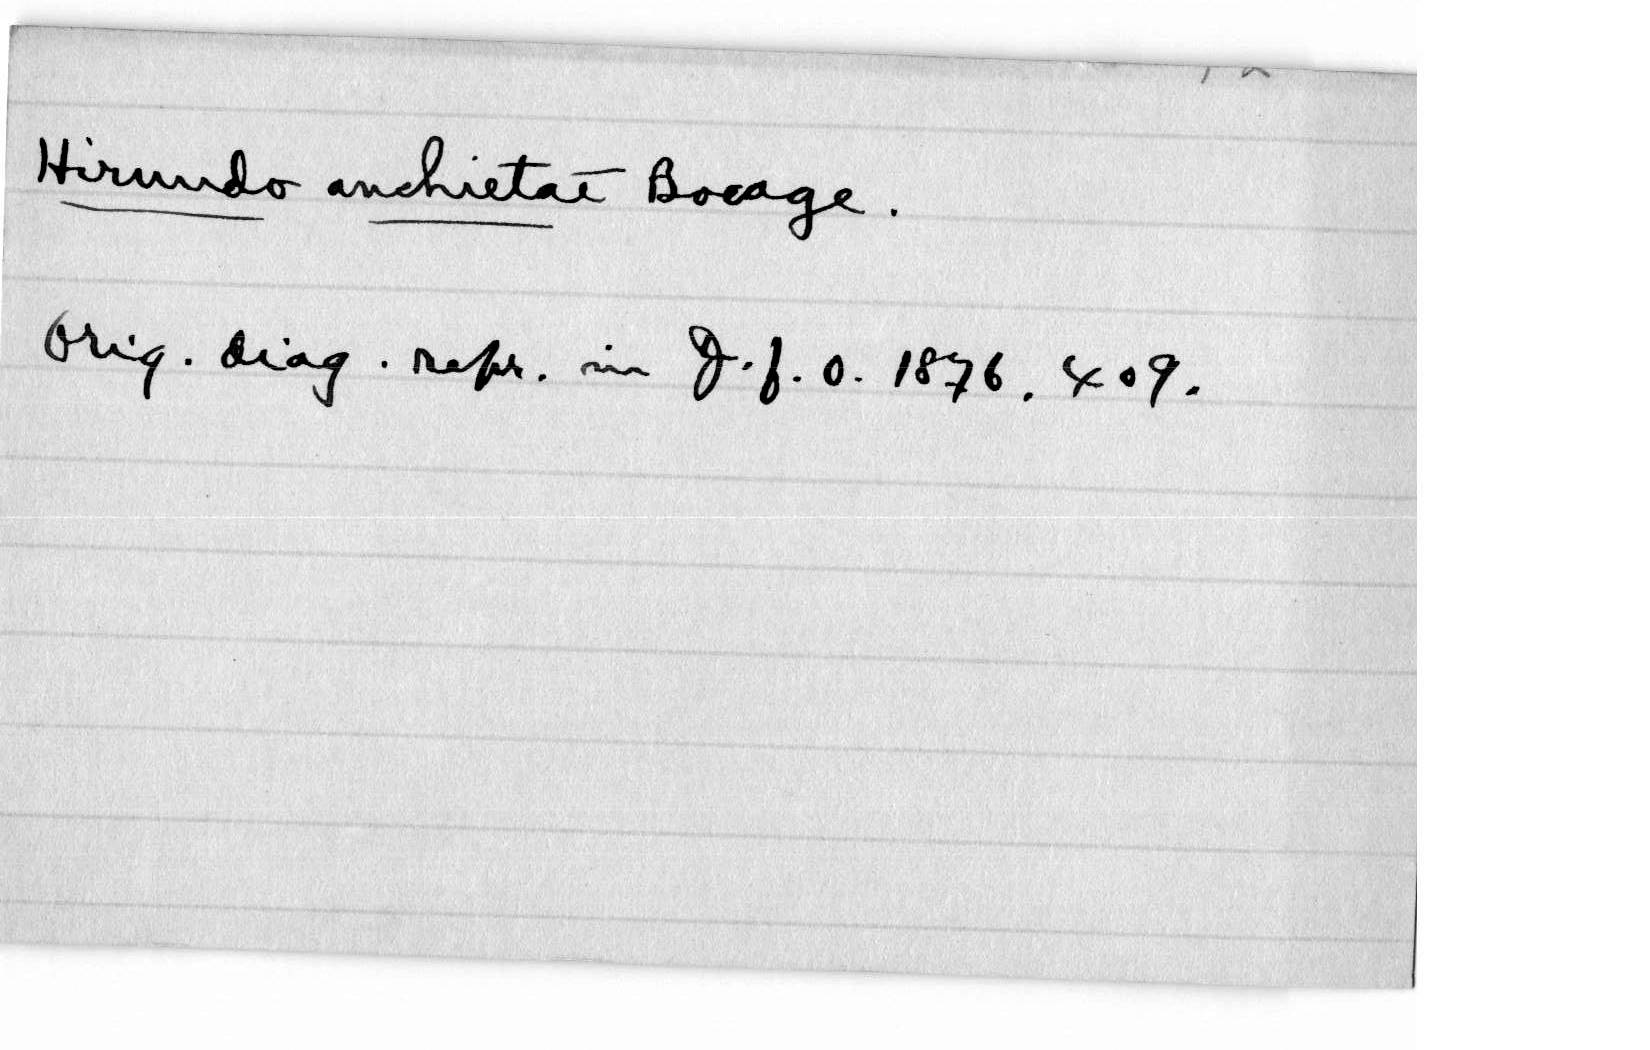 Hirundo anchietae Bocage.
Orig. diag. repr. in J.f.O. 1876. 409.